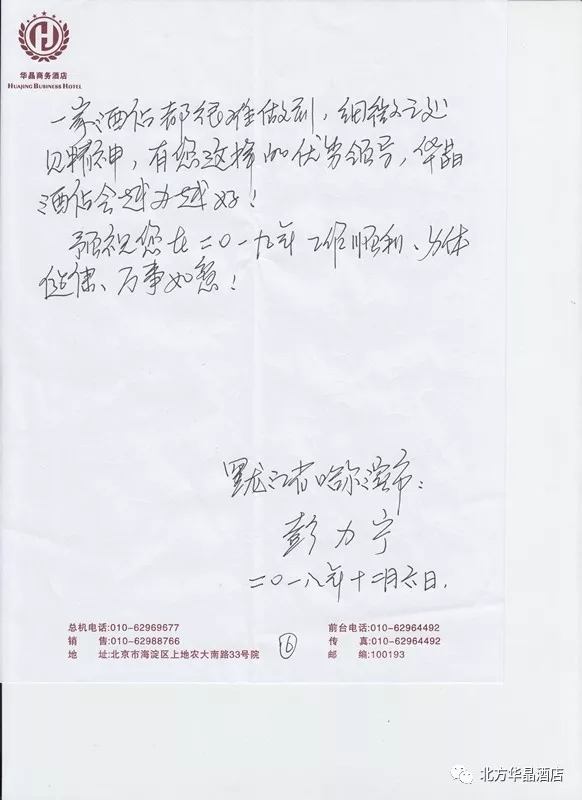 H
华晶商务酒店
HUAJING BUSINESS HOTEL
一家酒店都很难做到，细微之处
见精神，有您这样的优秀领导，华晶
酒店会越办越好！
预祝您在二〇一九年工作顺利、身体
健康、万事如意！
黑龙江省哈尔滨市：
彭力宁
二〇一八年十二月六日.
总机电话:010-62969677
前台电话:010-62964492
销 售:010-62988766
传 真:010-62964492
地 址:北京市海淀区上地农大南路33号院
⑥
邮 编:100193
北方华晶酒店